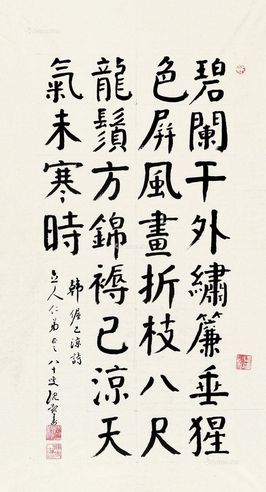 碧闌干外繡簾垂猩
色屏風畫折枝八尺
龍鬚方錦褥已涼天
氣未寒時
韓偓已涼詩
立人仁弟正之 八十叟